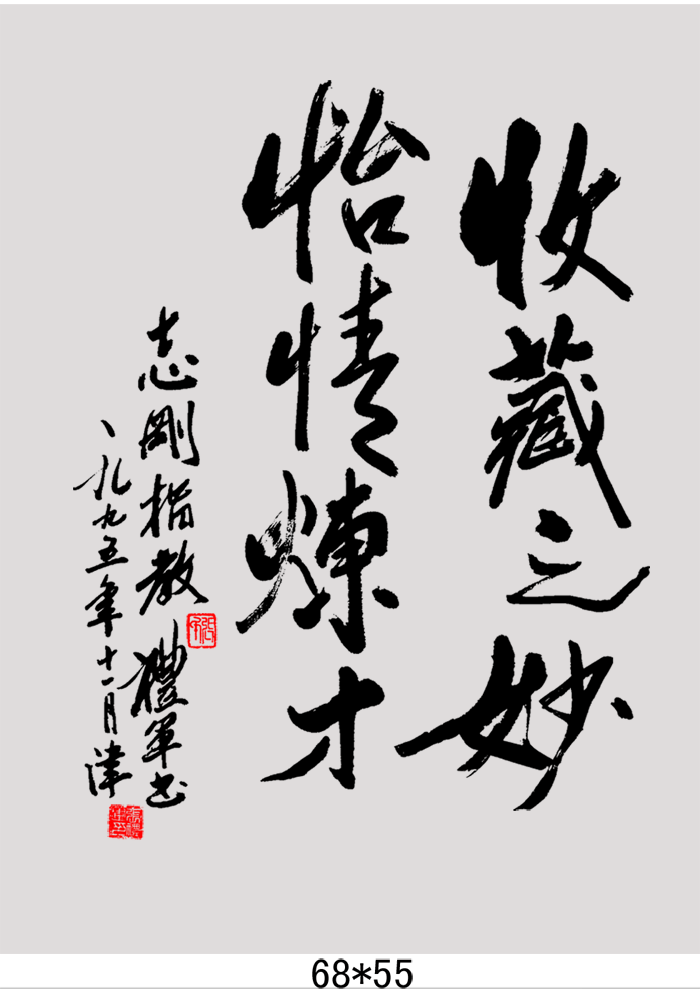 收藏之妙
怡情煉才
志剛指教 禮軍书
一九九五年十一月津
68*55